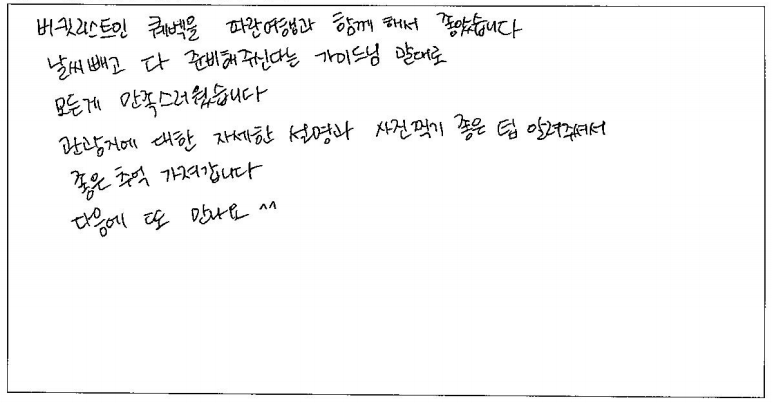 버킷리스트인 퀘벡을 파란여행과 함께 해서 좋았습니다
날씨 빼고 다 준비해주신다는 가이드님 말대로
모든게 만족스러웠습니다
관광지에 대한 자세한 설명과 사진찍기 좋은 팁 알려주셔서
좋은 추억 가져갑니다
다음에 또 만나요 ^^